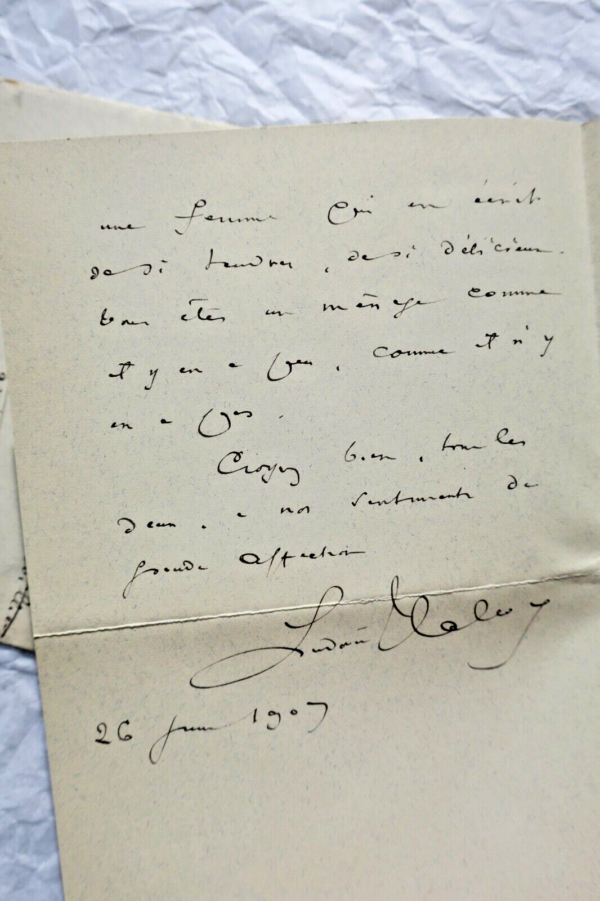 une femme qui en écrit
de si tendres, de si délicieux.
Vous êtes un ménage comme
il y en a peu, comme il n'y
en a pas.
Croyez bien, tous les
deux, a nos sentiments de
grande affection
Ludovic Halévy
26 juin 1907